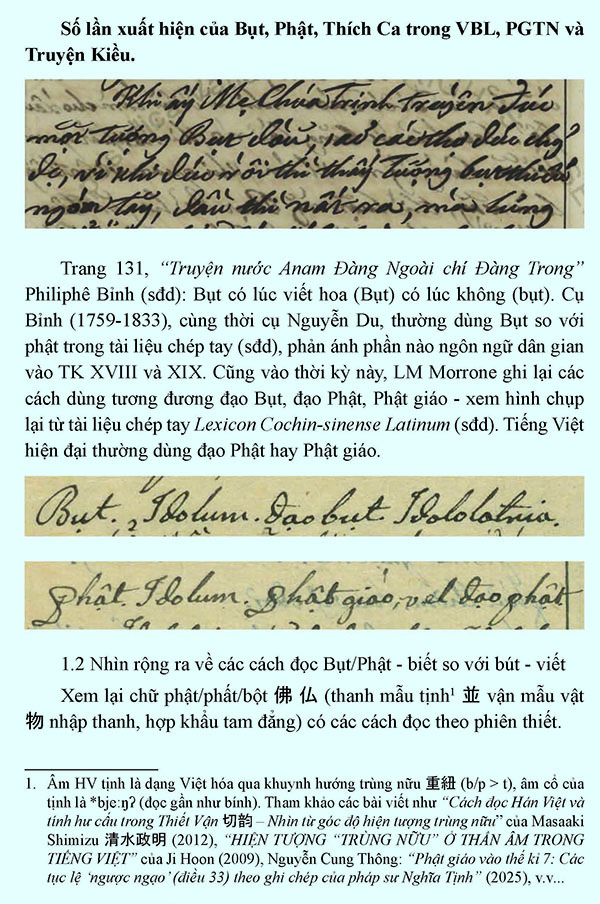 Số lần xuất hiện của Bụt, Phật, Thích Ca trong VBL, PGTN và
Truyện Kiều.
Khi ấy Mẹ Chúa Trịnh truyền đúc
một tượng Bụt đầu, các thợ đúc chg᷄
đc, vì khi đúc rồi thì thấy tượng bụt thiếu
ngón tay, đầu thì nất ra, mà
Trang 131, “Truyện nước Anam Đàng Ngoài chí Đàng Trong”
Philiphê Bỉnh (sđd): Bụt có lúc viết hoa (Bụt) có lúc không (bụt). Cụ
Bỉnh (1759-1833), cùng thời cụ Nguyễn Du, thường dùng Bụt so với
phật trong tài liệu chép tay (sđd), phản ánh phần nào ngôn ngữ dân gian
vào TK XVIII và XIX. Cũng vào thời kỳ này, LM Morrone ghi lại các
cách dùng tương đương đạo Bụt, đạo Phật, Phật giáo - xem hình chụp
lại từ tài liệu chép tay Lexicon Cochin-sinense Latinum (sđd). Tiếng Việt
hiện đại thường dùng đạo Phật hay Phật giáo.
Bụt. Idolum. đạo bụt. Idololatria.
phật. Idolum. phật giáo, vel đạo phật
1.2 Nhìn rộng ra về các cách đọc Bụt/Phật - biết so với bút - viết
Xem lại chữ phật/phất/bột 佛 仏 (thanh mẫu tịnh¹ 並 vận mẫu vật
物 nhập thanh, hợp khẩu tam đẳng) có các cách đọc theo phiên thiết.
1. Âm HV tịnh là dạng Việt hóa qua khuynh hướng trùng nữu 重紐 (b/p > t), âm cổ của
tịnh là *bjeːŋʔ (đọc gần như bính). Tham khảo các bài viết như “Cách đọc Hán Việt và
tính hư cấu trong Thiết Vận 切韵 – Nhìn từ góc độ hiện tượng trùng nữu” của Masaaki
Shimizu 清水政明 (2012), “HIỆN TƯỢNG “TRÙNG NỮU” Ở THẦN ÂM TRONG
TIẾNG VIỆT” của Ji Hoon (2009), Nguyễn Cung Thông: “Phật giáo vào thế kỉ 7: Các
tục lệ ‘ngược ngạo’ (điều 33) theo ghi chép của pháp sư Nghĩa Tịnh” (2025), v.v...